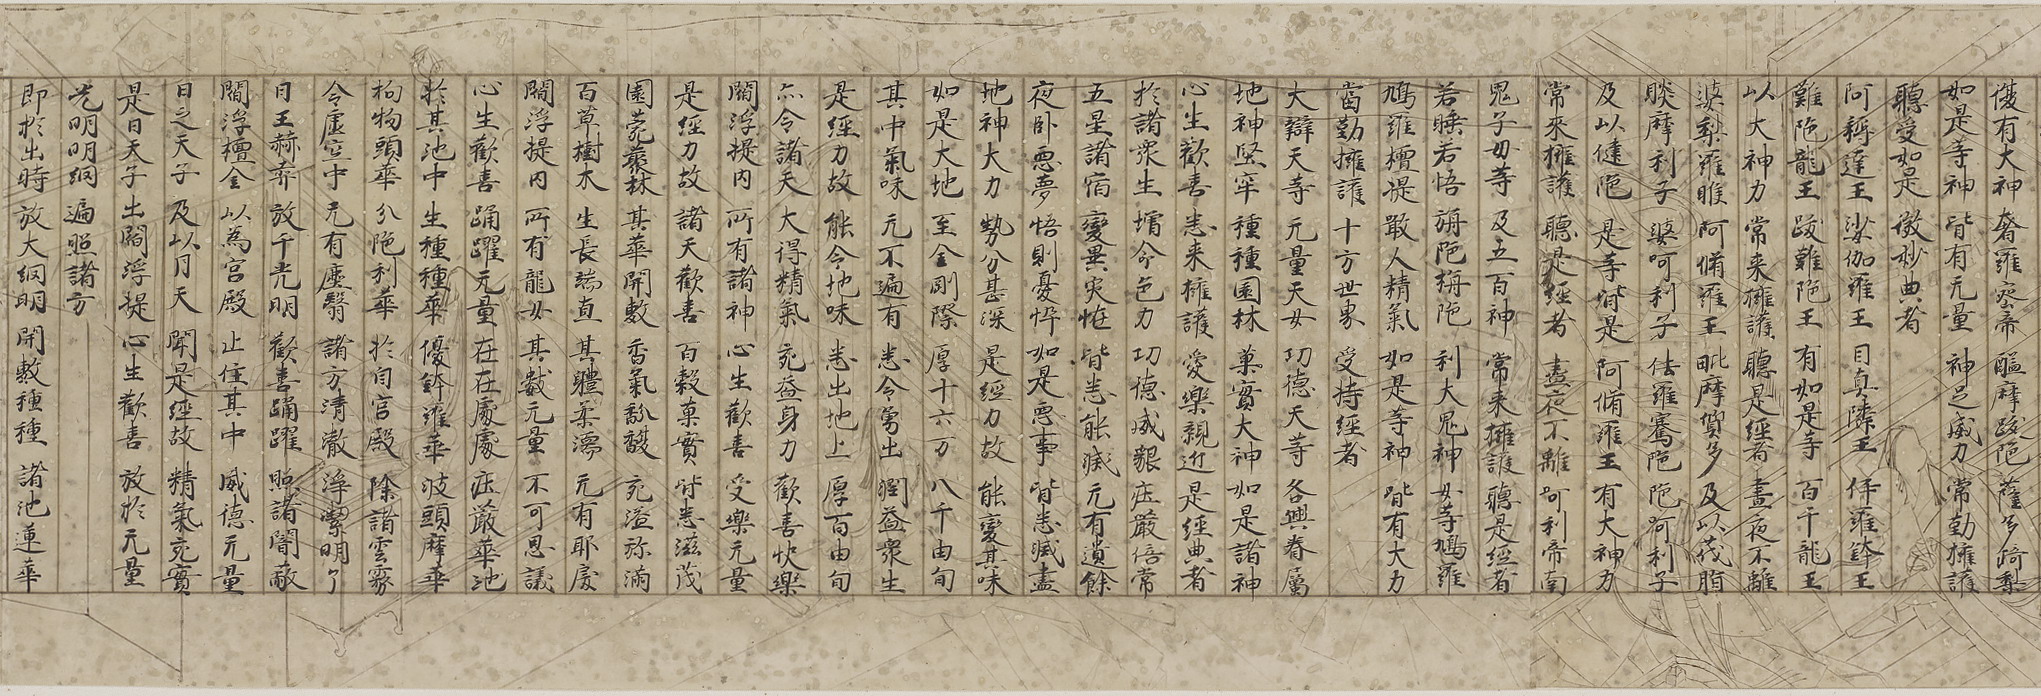 復有大神 奢羅蜜帝 醯摩跋陀 薩多錡梨
如是等神 皆有无量 神足威力 常勤擁護
聽受如是 微妙典者
阿耨達王 娑伽羅王 目真隣王 伊羅鉢王
難陀龍王 跋難陀王 有如是等 百千龍王
以大神力 常来擁護 聽是經者 晝夜不離
婆梨羅睺 阿脩羅王 毗摩質多 及以茂脂
睒摩利子 婆呵利子 佉羅騫陀 陀呵利子
及以揵陀 是等皆是 阿脩羅王 有大神力
常來擁護 聽是經者 晝夜不離 呵利帝南
鬼子母等 及五百神 常来擁護 聽是經者
若睡若悟 旃陀旃陀 利大鬼神 女等鳩羅
鳩羅檀提 噉人精氣 如是等神 皆有大力
當勤擁護 十方世界 受持經者
大辯天等 无量天女 功德天等 各與眷屬
地神堅牢 種種園林 菓實大神 如是諸神
心生歡喜 悉来擁護 愛樂親近 是經典者
於諸衆生 增命色力 功德威貌 莊嚴倍常
五星諸宿 變異灾恠 皆悉能滅 无有遺餘
夜卧惡夢 悟則憂悴 如是惡事 皆悉滅盡
地神大力 勢分甚深 是經力故 能變其味
如是大地 至金剛際 厚十六万 八千由旬
其中氣味 无不遍有 悉令勇出 潤益衆生
是經力故 能令地味 悉出地上 厚百由旬
亦令諸天 大得精氣 充益身力 歡喜快樂
閻浮提内 所有諸神 心生歡喜 受樂无量
是經力故 諸天歡喜 百穀菓實 皆悉滋茂
園菀藂林 其華開敷 香氣馚馥 充溢弥滿
百草樹木 生長端直 其體柔濡 无有耶戾
閻浮提内 所有龍女 其數无量 不可思議
心生歡喜 踊躍无量 在在處處 莊嚴華池
於其池中 生種種華 優鉢羅華 波頭摩華
拘物頭華 分陀利華 於自宮殿 除諸雲霧
令虛空中 无有塵翳 諸方清澈 淨潔明了
日王赫弈 放千光明 歡喜踊躍 照諸闇蔽
閻浮檀金 以為宮殿 止住其中 威德无量
日之天子 及以月天 聞是經故 精氣充實
是日天子 出閻浮提 心生歡喜 放於无量
光明明網 遍照諸方
即於出時 放大網明 開敷種種 諸池蓮華